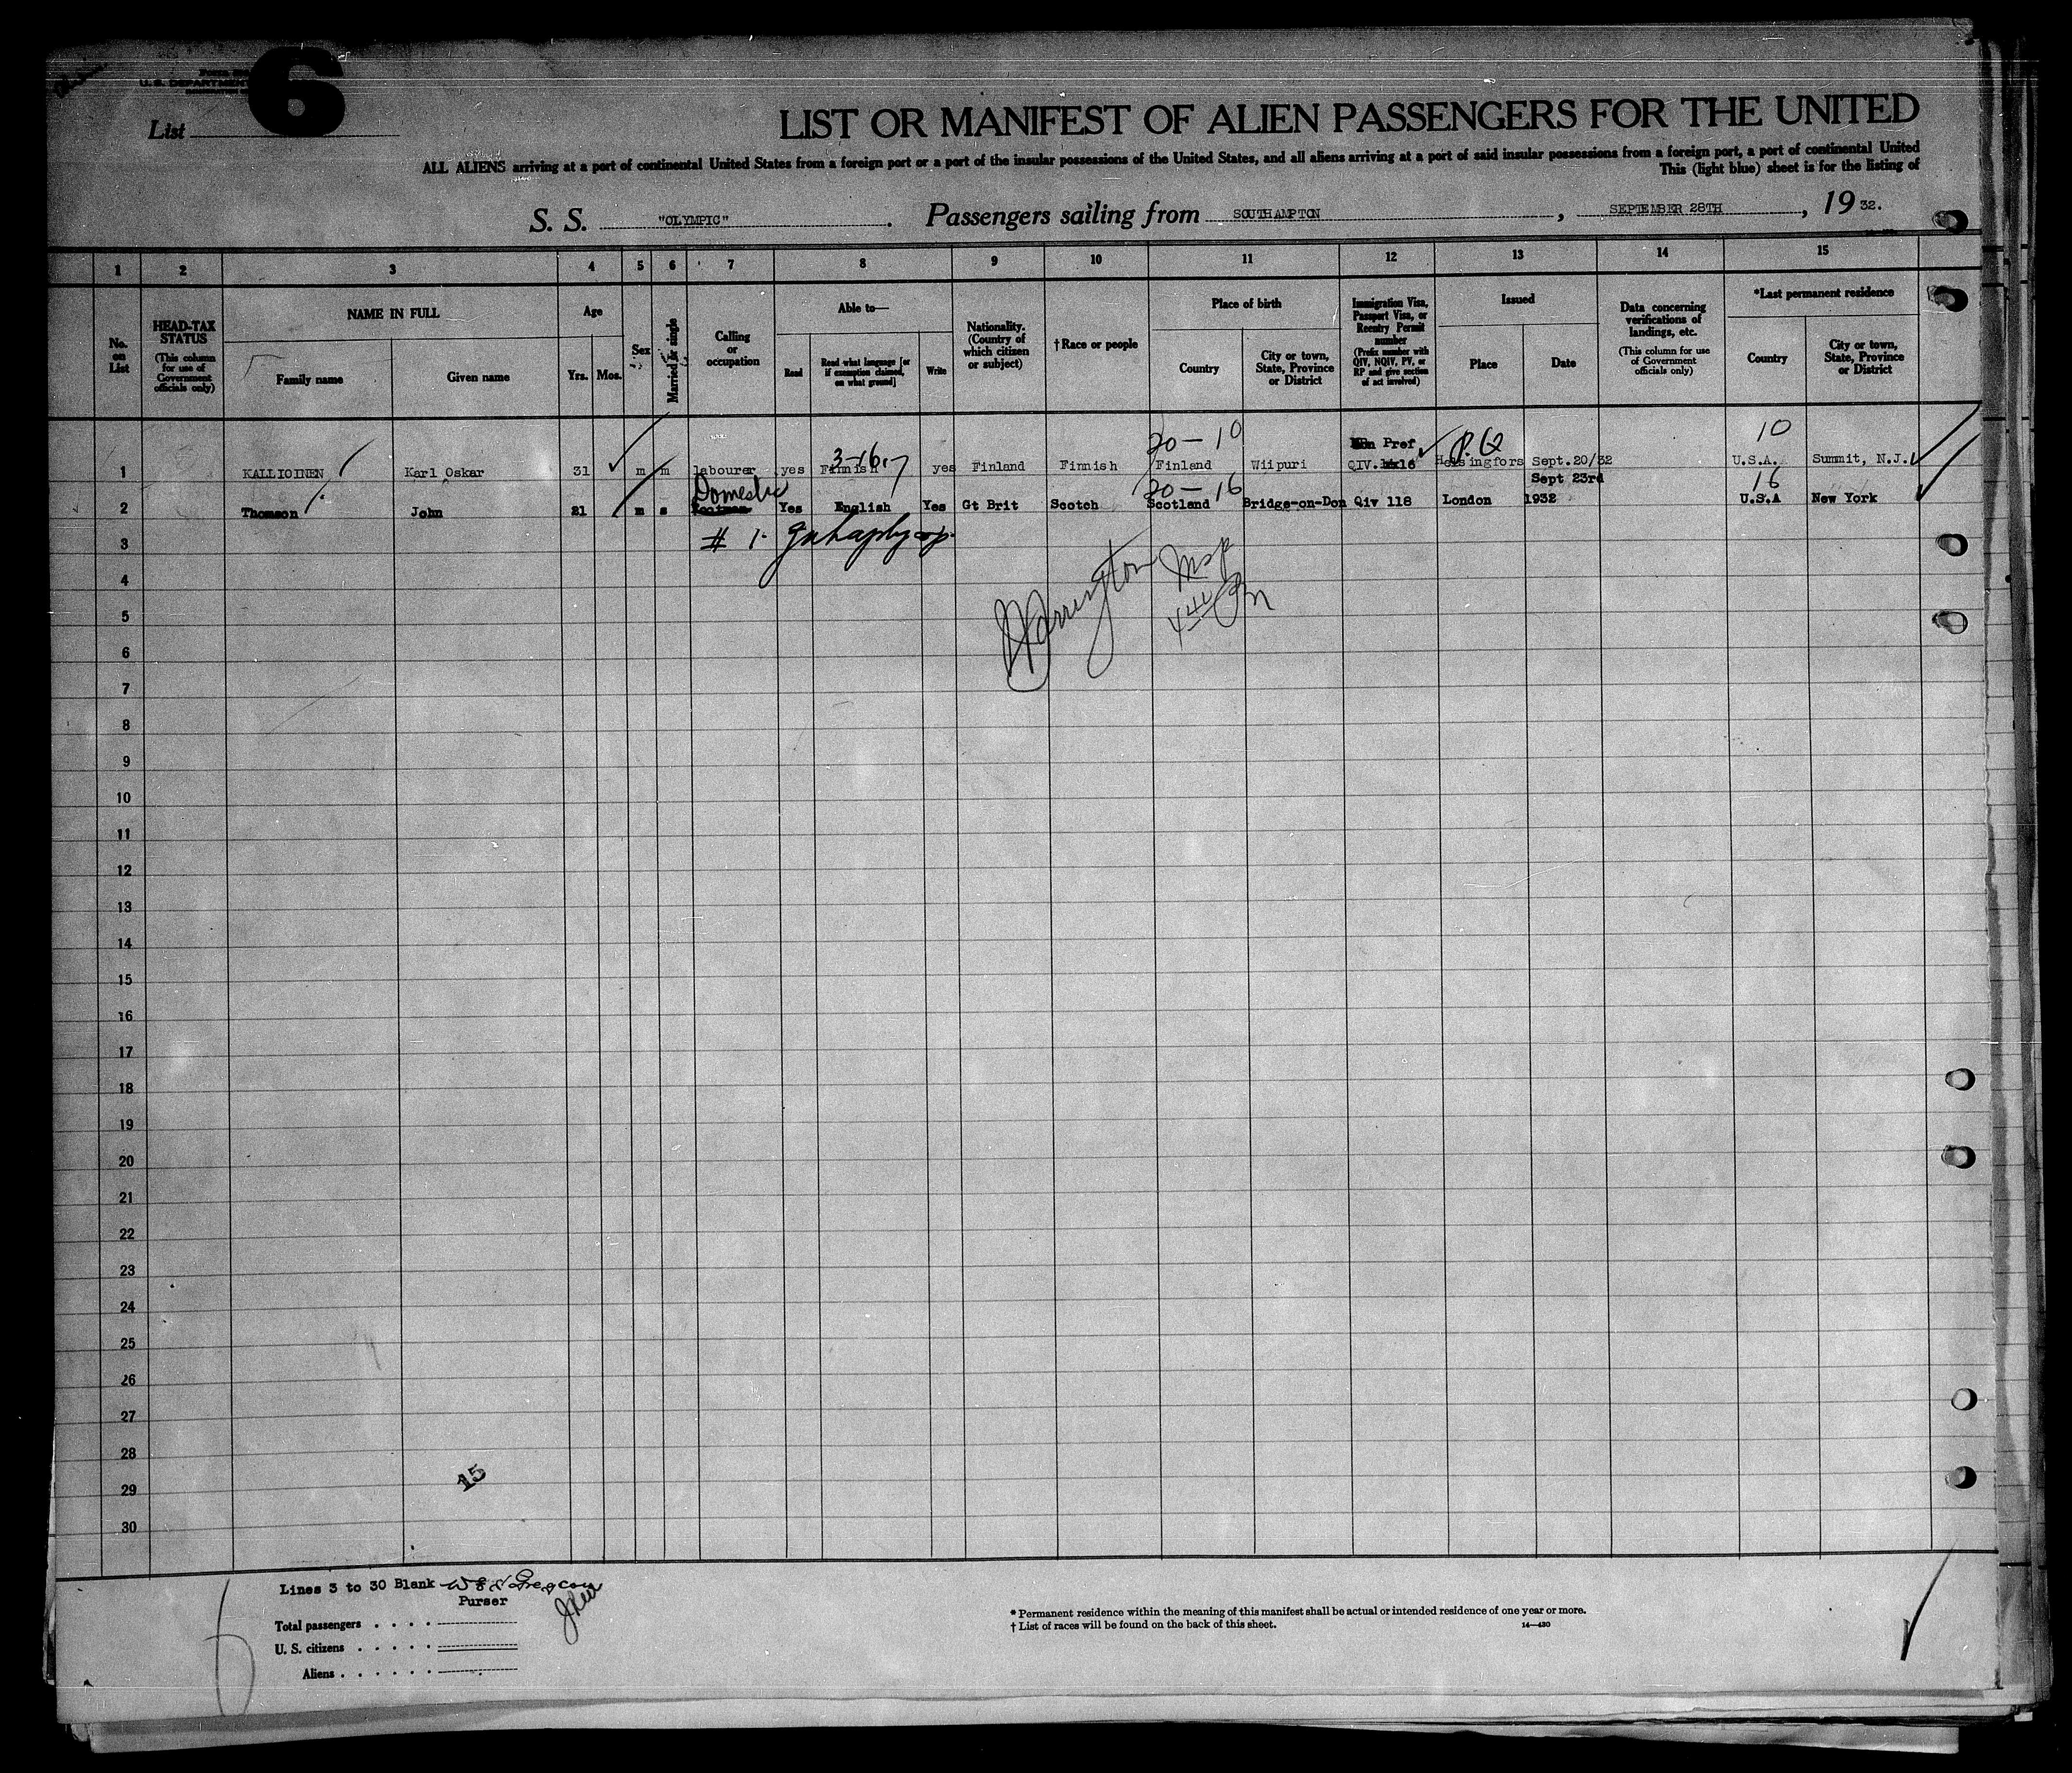 6
U. S. DEPARTMENT
List
LIST OR MANIFEST OF ALIEN PASSENGERS FOR THE UNITED
ALL ALIENS arriving at a port of continental United States from a foreign port or a port of the insular possessions of the United States, and all aliens arriving at a port of said insular possessions from a foreign port, a port of continental United
This (light blue) sheet is for the listing of
S. S. "OLYMPIC". Passengers sailing from SOUTHAMPTON, SEPTEMBER 28TH, 19 32.
1 2 3 4 5 6 7 8 9 10 11 12 13 14 15
No. on List
HEAD-TAX STATUS
(This column for use of Government officials only)
NAME IN FULL
Family name Given name
Age
Yrs. Mos.
Sex
Married or single
Calling or occupation
Able to—
Read
Read what language [or if exemption claimed, on what ground]
Write
Nationality. (Country of which citizen or subject)
†Race or people
Place of birth
Country
City or town, State, Province or District
Immigration Visa, Passport Visa, or Reentry Permit number
(Prefix number with QIV, NQIV, PV, or RP and give section of act involved)
Issued
Place Date
Data concerning verifications of landings, etc.
(This column for use of Government officials only)
*Last permanent residence
Country
City or town, State, Province or District
20-10 Non Pref P.Q 10
3-16-7
1 KALLIOINEN Karl Oskar 31 m m labourer yes Finnish yes Finland Finnish Finland Wiipuri QIV. 16 Helsingfors Sept.20/32 U.S.A. Summit, N.J.
Domestic 20-16 Sept 23rd 16
2 Thomson John 21 m s Footman Yes English Yes Gt Brit Scotch Scotland Bridge-on-Don Qiv 118 London 1932 U.S.A New York
# 1.
3
4
5
6
7
8
9
10
11
12
13
14
15
16
17
18
19
20
21
22
23
24
25
26
27
28
29
30
15
Lines 3 to 30 Blank
Purser
Total passengers . . . .
U. S. citizens . . . . .
Aliens . . . . . .
* Permanent residence within the meaning of this manifest shall be actual or intended residence of one year or more.
† List of races will be found on the back of this sheet.
14—430